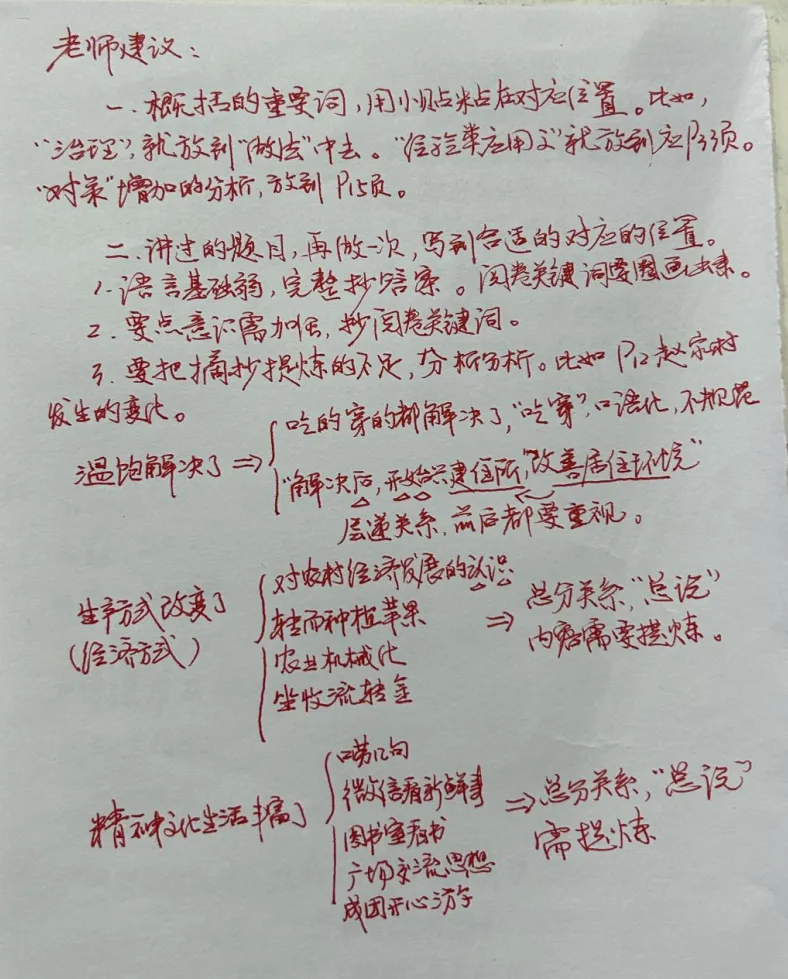 老师建议：
一.概括的重要词，用小贴粘在对应位置。比如，
“治理”，就放到“做法”中去。“经验类应用文”就放到应P33页。
“对策”增加的分析，放到P15页。
二.讲过的题目，再做一次，写到合适的对应的位置。
1.语言基础弱，完整抄答案。阅卷关键词要圈画出来。
2.要点意识需加强，抄阅卷关键词。
3.要把摘抄提炼的不足，分析分析。比如P12赵家村
发生的变化。
温饱解决了⇒
吃的穿的都解决了，“吃穿”，口语化，不规范
“解决后，开始兴建住所，“改善居住环境”
层递关系，前后都要重视。
生产方式改变了
(经济方式)
对农村经济发展的认识
转而种植苹果
农业机械化
坐收流转金
⇒总分关系，“总说”
内容需要提炼。
精神文化生活丰富了
唠几句
微信看新鲜事
图书室看书
广场交流思想
成团开心游
⇒总分关系，“总说”
需提炼